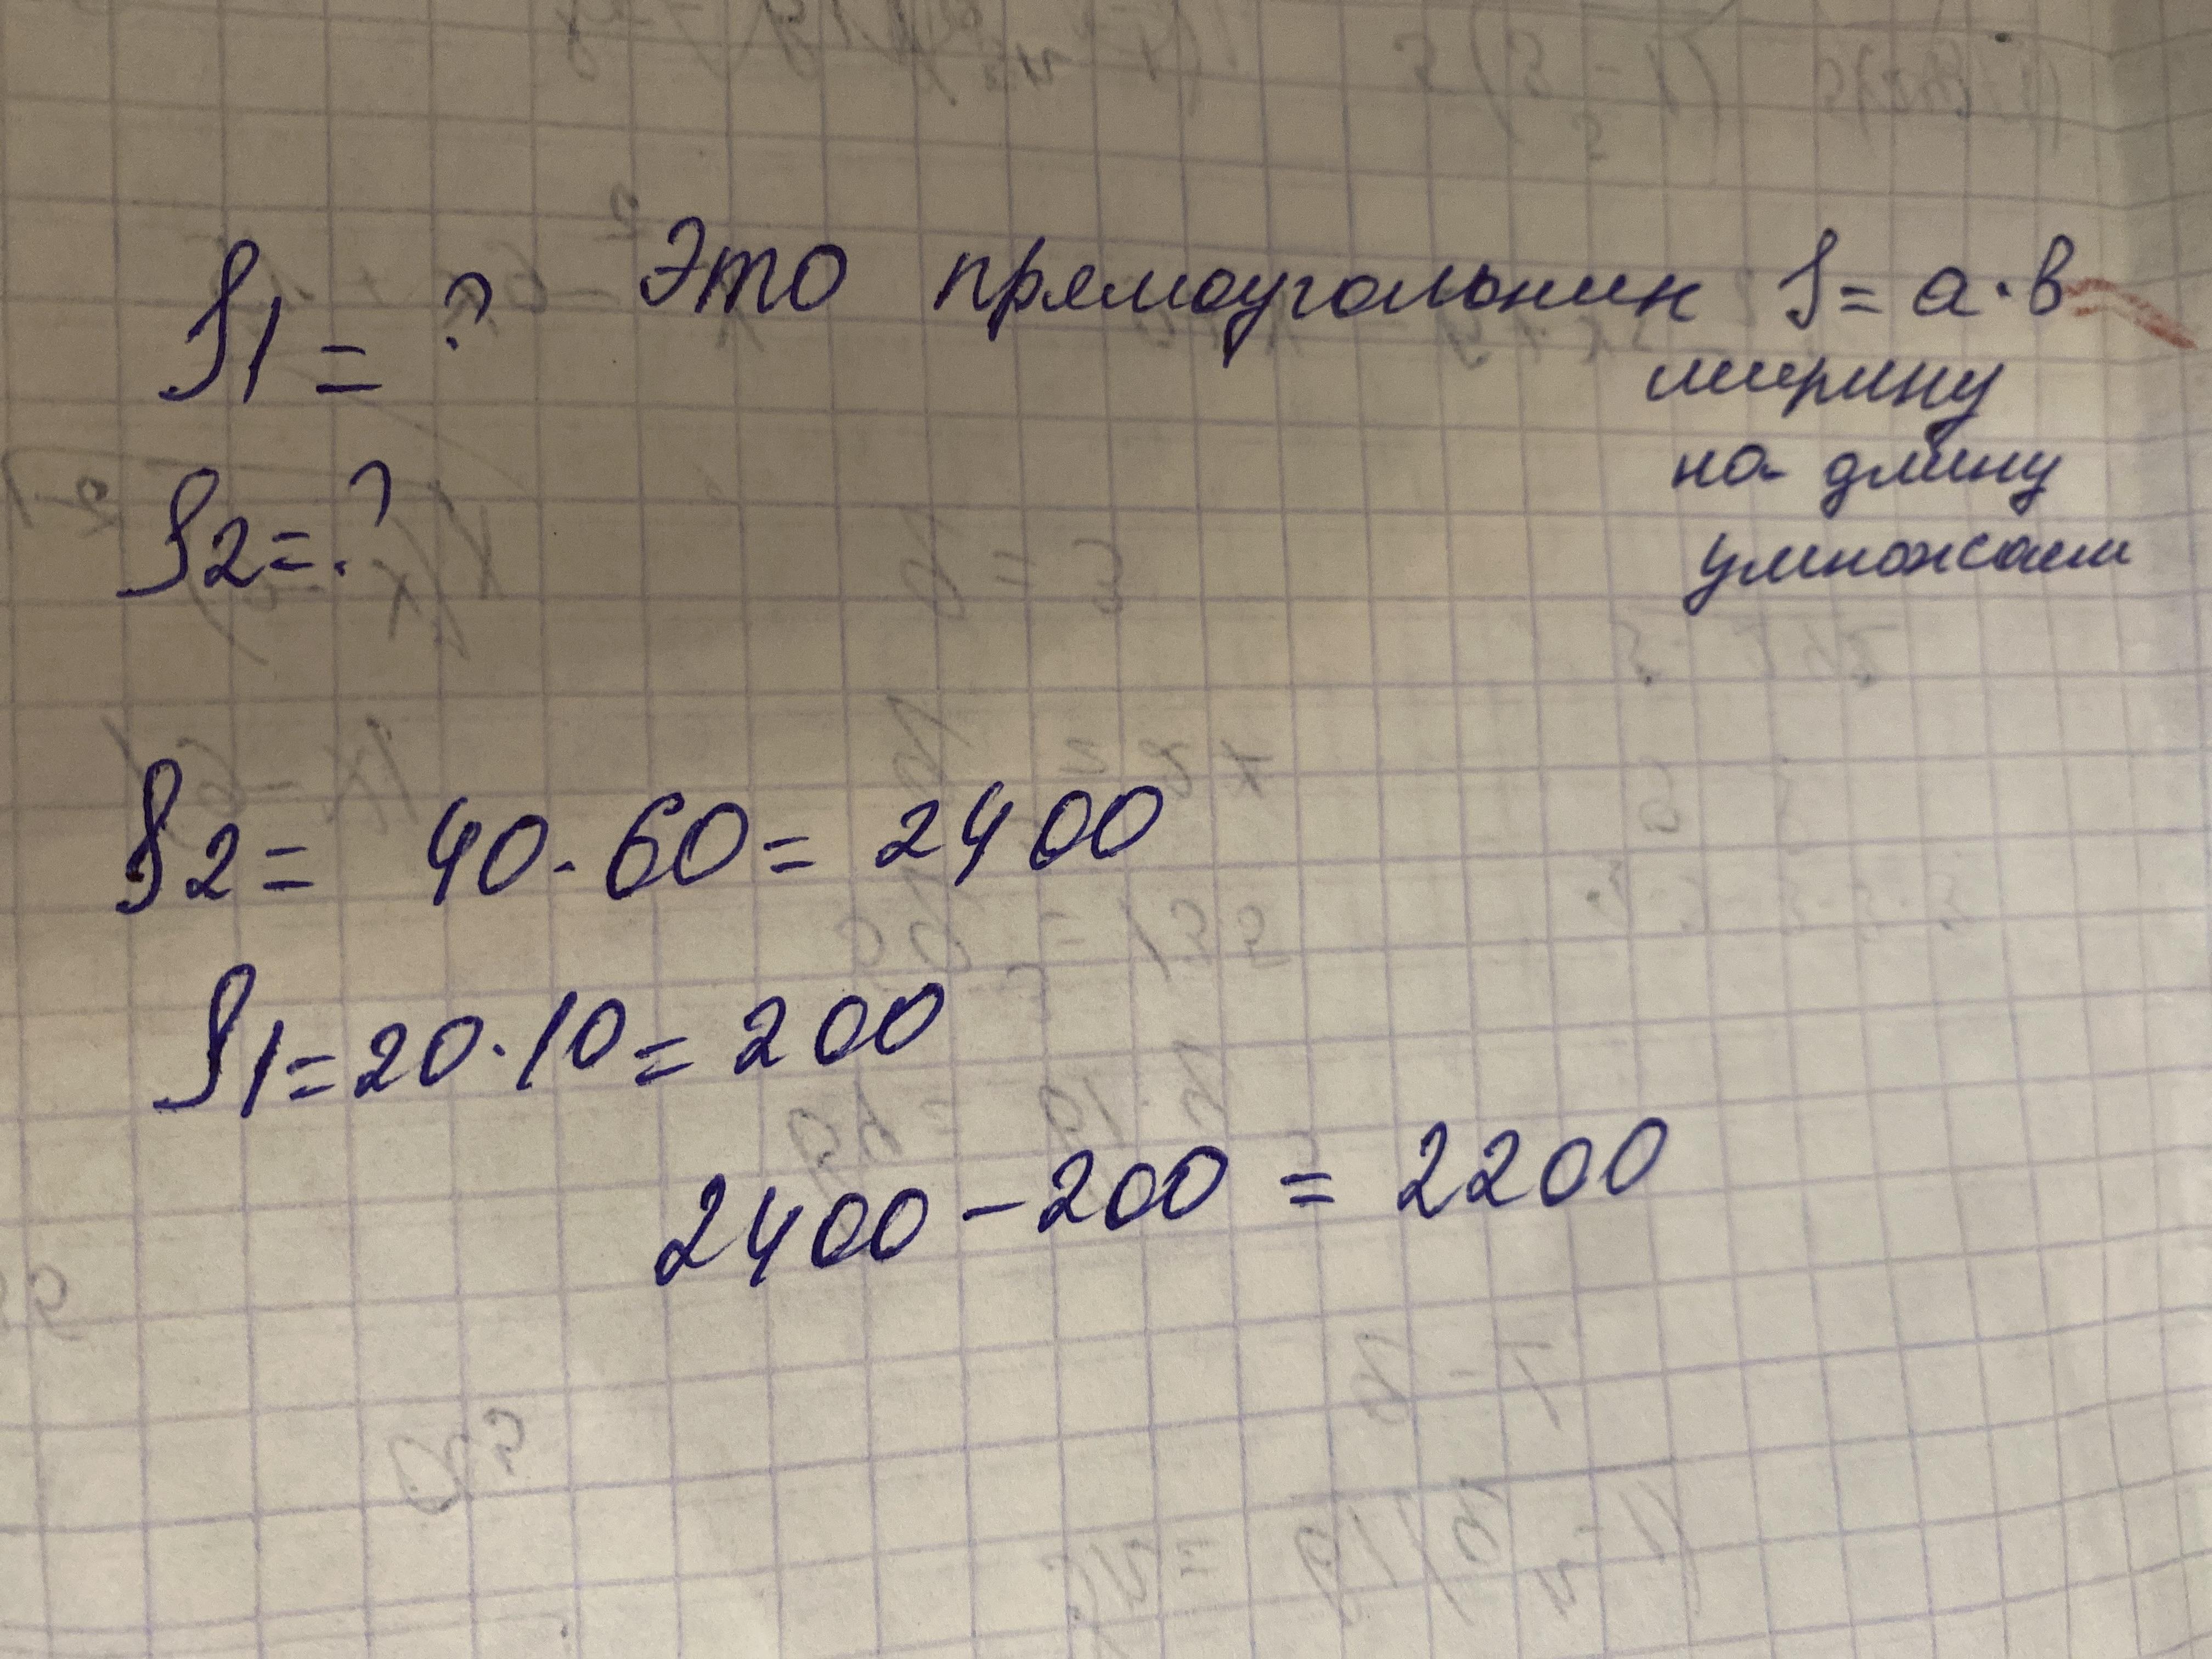 S1 = ? Это прямоугольник S = а · в
ширину
на длину
умножаем
S2 = ?
S2 = 40 · 60 = 2400
S1 = 20 · 10 = 200
2400 - 200 = 2200